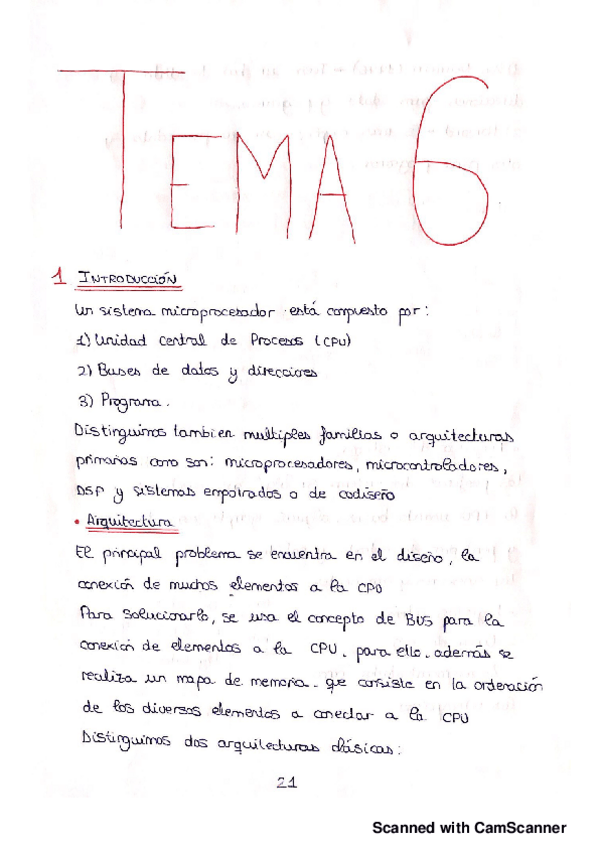 TEMA 6
1 INTRODUCCIÓN
Un sistema microprocesador está compuesto por:
1) Unidad central de Procesos (CPU)
2) Buses de datos y direcciones
3) Programa.
Distinguimos tambien multiples familias o arquitecturas
primarias como son: microprocesadores, microcontroladores,
DSP y sistemas empotrados o de codiseño
• Arquitectura
El principal problema se encuentra en el diseño, la
conexión de muchos elementos a la CPU
Para solucionarlo, se usa el concepto de BUS para la
conexión de elementos a la CPU, para ello, además se
realiza un mapa de memoria que consiste en la ordenación
de los diversos elementos a conectar a la CPU
Distinguimos dos arquitecturas clásicas:
21
Scanned with CamScanner